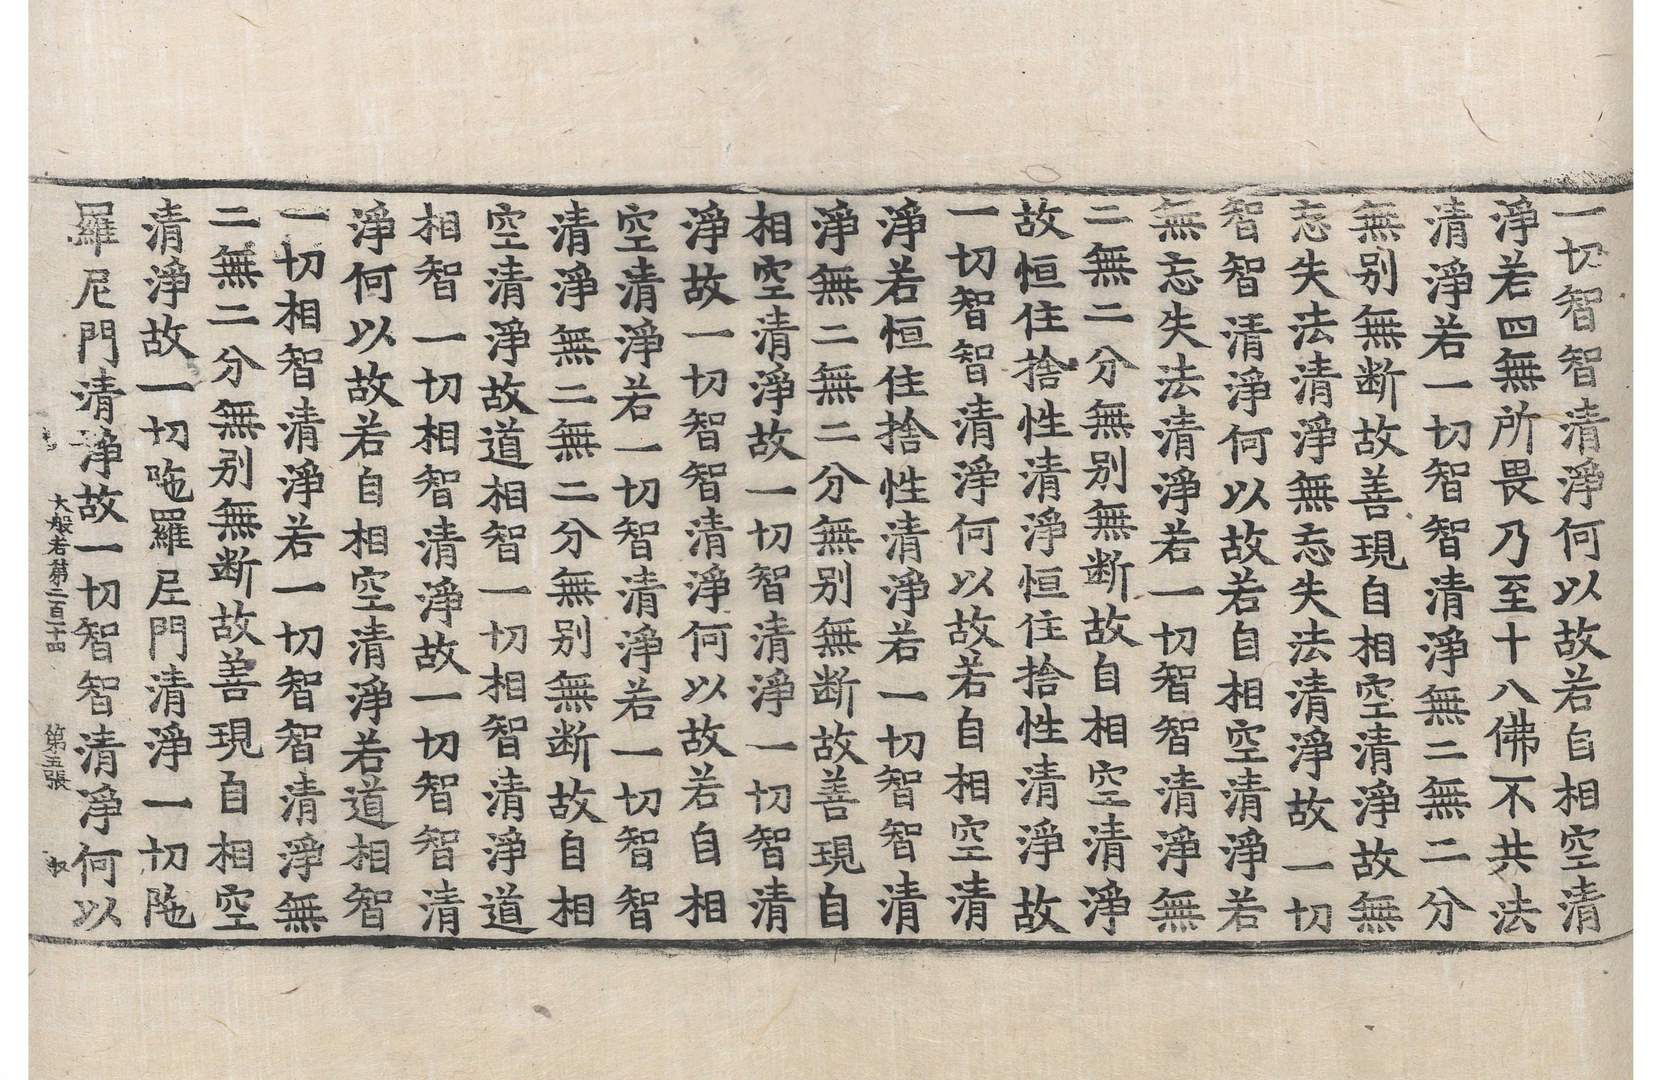 一切智智清淨何以故若自相空清
淨若四無所畏乃至十八佛不共法
清淨若一切智智清淨無二無二分
無别無断故善現自相空清淨故無
忘失法清淨無忘失法清淨故一切
智智清淨何以故若自相空清淨若
無忘失法清淨若一切智智清淨無
二無二分無别無断故自相空清淨
故恒住捨性清淨恒住捨性清淨故
一切智智清淨何以故若自相空清
淨若恒住捨性清淨若一切智智清
淨無二無二分無别無断故善現自
相空清淨故一切智清淨一切智清
淨故一切智智清淨何以故若自相
空清淨若一切智清淨若一切智智
清淨無二無二分無别無断故自相
空清淨故道相智一切相智清淨道
相智一切相智清淨故一切智智清
淨何以故若自相空清淨若道相智
一切相智清淨若一切智智清淨無
二無二分無别無断故善現自相空
清淨故一切陁羅尼門清淨一切陁
羅尼門清淨故一切智智清淨何以
大般若第二百十四 第五張